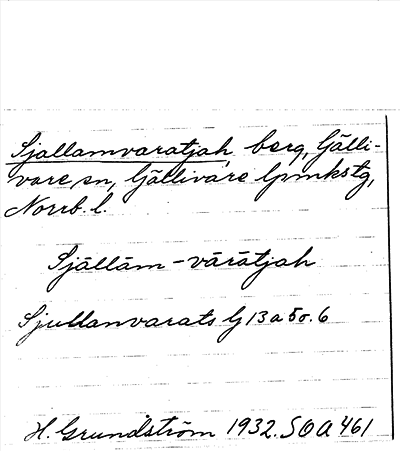 Sjallamvaratjah, berg, Gälli-
vare sn, Gällivare lpmkstg,
Norrb. l.
Sjållåm-våråtjah
Sjullanvarats G 13 a 5 o. 6
H. Grundström 1932. SOA 461